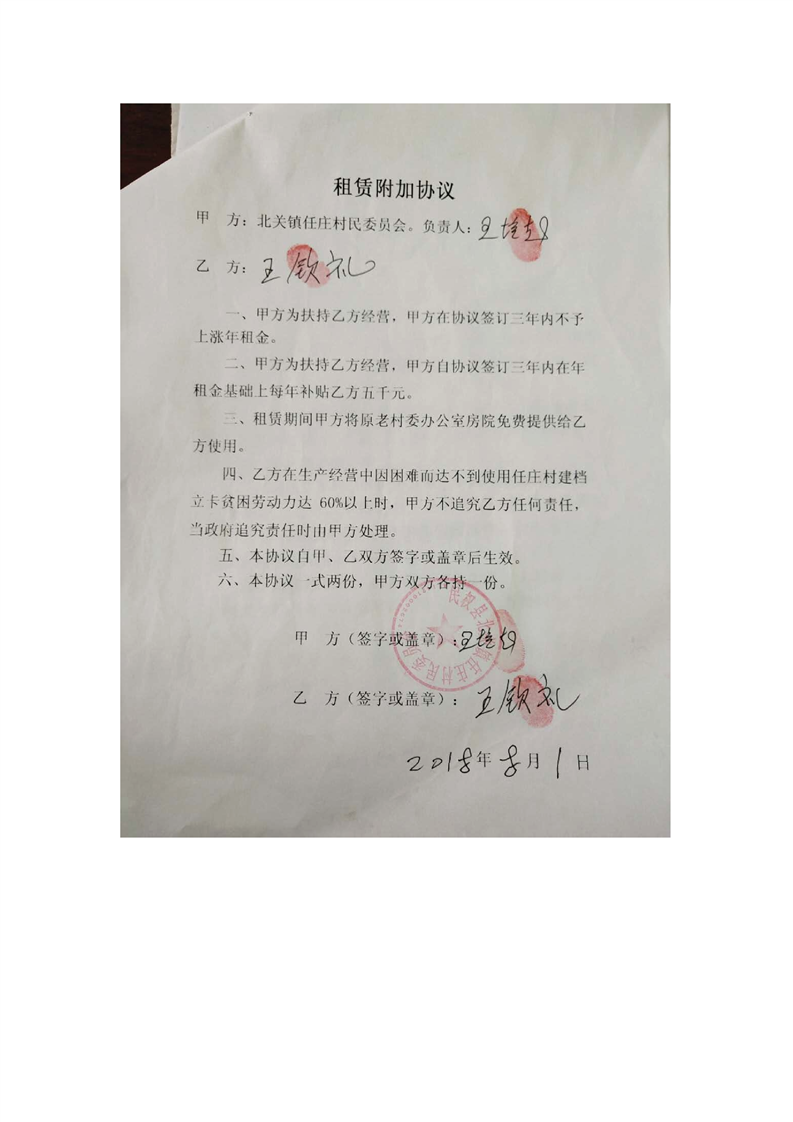 租赁附加协议
甲 方：北关镇任庄村民委员会。负责人：王
乙 方：王钦礼
一、甲方为扶持乙方经营，甲方在协议签订三年内不予
上涨年租金。
二、甲方为扶持乙方经营，甲方自协议签订三年内在年
租金基础上每年补贴乙方五千元。
三、租赁期间甲方将原老村委办公室房院免费提供给乙
方使用。
四、乙方在生产经营中因困难而达不到使用任庄村建档
立卡贫困劳动力达 60%以上时，甲方不追究乙方任何责任，
当政府追究责任时由甲方处理。
五、本协议自甲、乙双方签字或盖章后生效。
六、本协议一式两份，甲方双方各持一份。
民权县北关镇任庄村民委员会
甲 方（签字或盖章）：王
乙 方（签字或盖章）：王钦礼
2018年8月1日